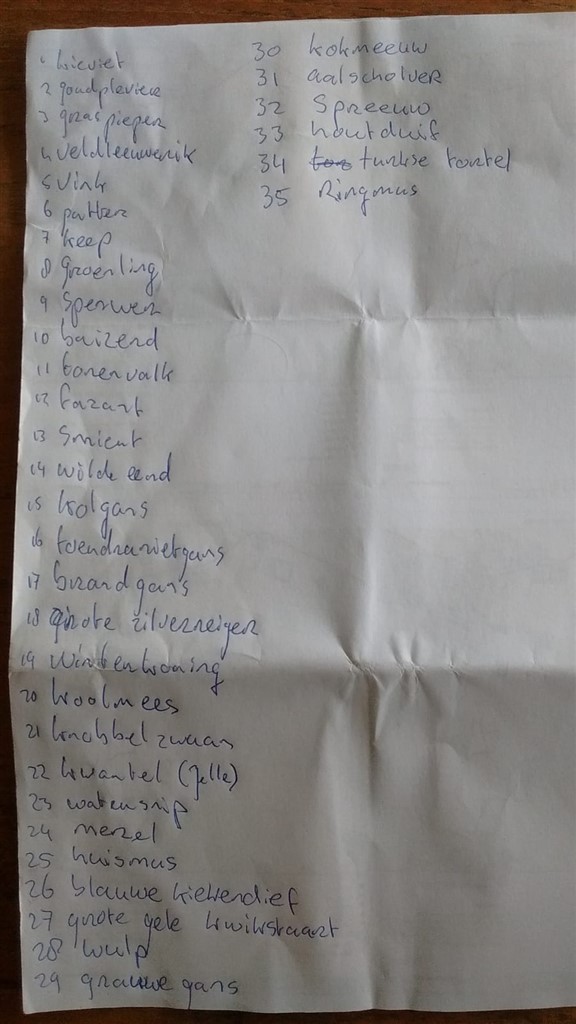 1 kieviet
2 goudplevier
3 graspieper
4 veldleeuwerik
5 vink
6 putter
7 keep
8 groenling
9 Sperwer
10 buizerd
11 torenvalk
12 fazant
13 Smient
14 wilde eend
15 kolgans
16 toendrarietgans
17 brandgans
18 grote zilverreiger
19 winterkoning
20 koolmees
21 knobbelzwaan
22 kwartel (Jelle)
23 watersnip
24 merel
25 huismus
26 blauwe kiekendief
27 grote gele kwikstaart
28 wulp
29 grauwe gans
30 kokmeeuw
31 aalscholver
32 Spreeuw
33 houtduif
34 turkse tortel
35 Ringmus